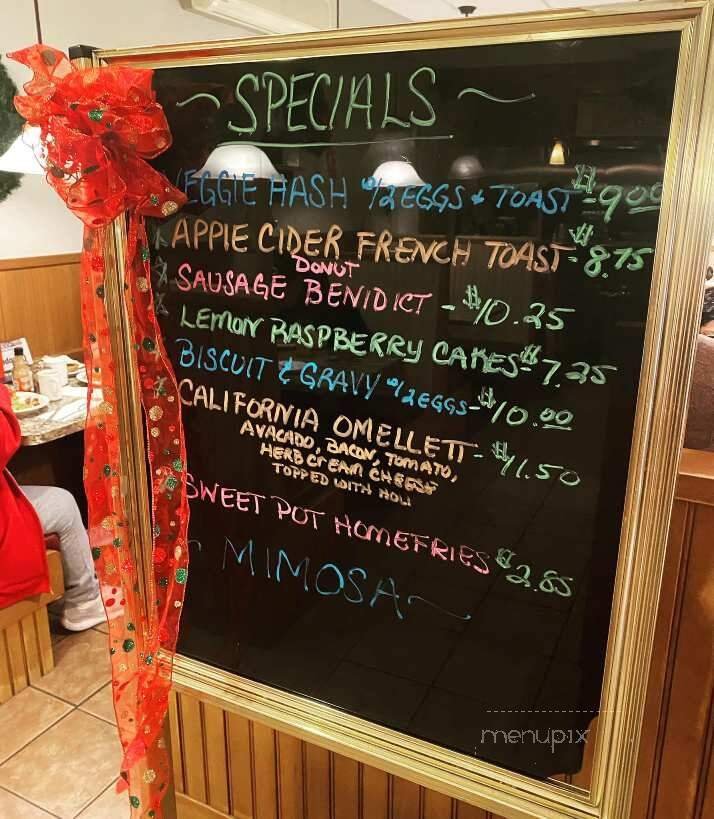 ~ SPECIALS ~
VEGGIE HASH W/2 EGGS & TOAST - $9.00
APPLE CIDER FRENCH TOAST - $8.75
DONUT
SAUSAGE BENIDICT - $10.25
LEMON RASPBERRY CAKES - $7.25
BISCUIT & GRAVY W/2 EGGS - $10.00
CALIFORNIA OMELLETT - $11.50
AVACADO, BACON, TOMATO,
HERB CREAM CHEESE
TOPPED WITH HOLI
SWEET POT HOMEFRIES $2.85
~ MIMOSA ~
menupix